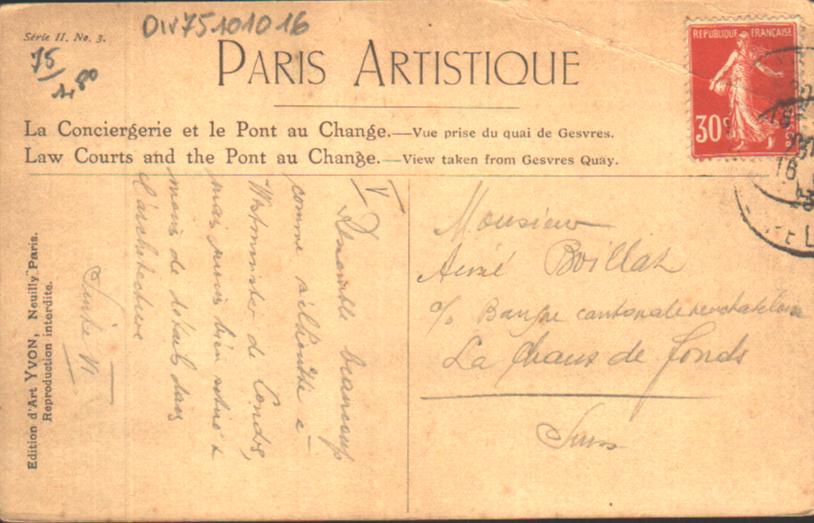 Série II. No. 3.
Div75101016
75
1,80
PARIS ARTISTIQUE
La Conciergerie et le Pont au Change.—Vue prise du quai de Gesvres.
Law Courts and the Pont au Change.—View taken from Gesvres Quay.
REPUBLIQUE FRANÇAISE
30c
POSTES
V
Ressemble beaucoup
comme silhouette à
Westminster de Londre,
mais moins bien situé &
moins de détails dans
l'architecture
Suite VI
Monsieur
Aimé Boillat
c/o Banque cantonale neuchateloise
La Chaux de fonds
Suisse
Edition d'Art YVON, Neuilly Paris.
Reproduction interdite.